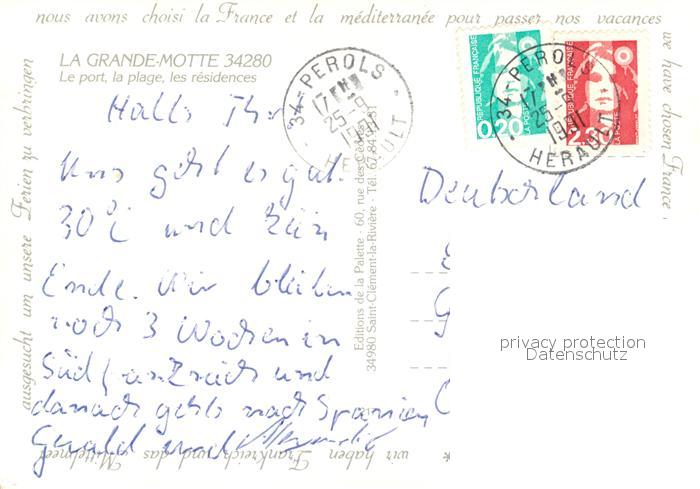 nous avons choisi la France et la méditerranée pour passer nos vacances
we have chosen France
LA GRANDE-MOTTE 34280
Le port, la plage, les résidences
34 - PEROLS
17 H
25-9
1991
HERAULT
REPUBLIQUE FRANÇAISE
0,20
LA POSTE
34 - PEROLS
17 H
25-9
1991
HERAULT
REPUBLIQUE FRANÇAISE
LA POSTE
Hallo Ihr
Uns geht es gut.
30°C und kein
Ende. Wir bleiben
noch 3 Wochen in
Südfrankreich und
danach gehts nach Spanien
Gerald und
Deutschland
Editions de la Palette - 60, rue des Cèdres
34980 Saint-Clément-la-Rivière - Tél. 67.84
privacy protection
Datenschutz
wir haben Frankreich und das Mittelmeer
ausgesucht um unsere Ferien zu verbringen